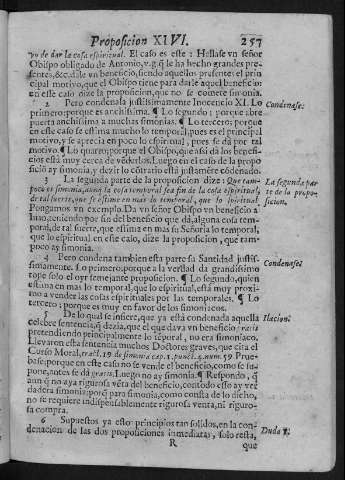 Proposicion XLVI. 257
vo de dar la cosa espiritual. El caso es este: Hallase vn señor
Obispo obligado de Antonio, v.g. q̃ le ha hecho grandes pre-
sentes, &c. dale vn beneficio, siendo aquellos presentes el prin
cipal motivo, que el Obispo tiene para darle aquel beneficio:
en este caso dize la proposicion, que no se comete simonia.
2 Pero condenala justissimamente Inocencio XI. Lo
Condenase:
primero: porque es anchissima. ¶ Lo segundo: porque abre
puerta anchissima a muchas simonias. ¶ Lo tercero: porque
en este caso se estima mucho lo temporal, pues es el principal
motivo, y se aprecia en poco lo espiritual, pues se dà por tal
motivo. ¶ Lo quarto: porque el Obispo, que assi dà los benefi-
cios está muy cerca de vēderlos. Luego en el caso de la propo
sició ay simonia, y dezir lo cōtrario está justamēte cōdenado.
3 La segunda parte de la proposicion dize: Que tam-
La segunda par
poco es simonia, aunq̃ la cosa temporal sea fin de la cosa espiritual,
te de la propo-
de tal suerte, que se estime en mas lo temporal, que lo spiritual.
sicion.
Pongamos vn exemplo. Da vn señor Obispo vn beneficio a
vno, teniendo por fin del beneficio que dà, alguna cosa tem-
poral, de tal suerte, que estima en mas su Señoria lo temporal,
que lo espiritual, en este caso, dize la proposicion, que tam-
poco ay simonia.
4 Pero condena tambien esta parte su Santidad justis-
Condenase:
simamente. Lo primero: porque a la verdad da grandissimo
tope solo el oyr semejante proposicion. ¶ Lo segundo, quien
estima en mas lo temporal, que lo espiritual, está muy proxi-
mo a vender las cosas espirituales por las temporales. ¶ Lo
tercero: porque es muy en favor de los simoniacos.
5 De lo qual se infiere, que ya está condenada aquella
Ilacion:
celebre sentencia, q̃ dezia, que el que dava vn beneficio gratis
pretendiendo principalmente lo tēporal, no era simoniaco.
Llevaron esta sentencia muchos Doctores graves, que cita el
Curso Moral, tract. 19 de simonia cap. 1. punct. 4. num. 59 Prue
base: porque en este caso no se vende el beneficio, como se su-
pone, antes se dà gratis. Luego no ay simonia. ¶ Respondo, q̃
aun q̃ no aya rigurosa vēta del beneficio, contodo esso ay ver
dadera simonia: porq̃ para simonia, como consta de lo dicho,
no se requiere indispensablemente rigurosa venta, ni riguro-
sa compra.
6 Supuestos ya estos principios tan solidos, en la con-
Duda 1.
denacion de las dos proposiciones inmediatas, solo resta,
R que